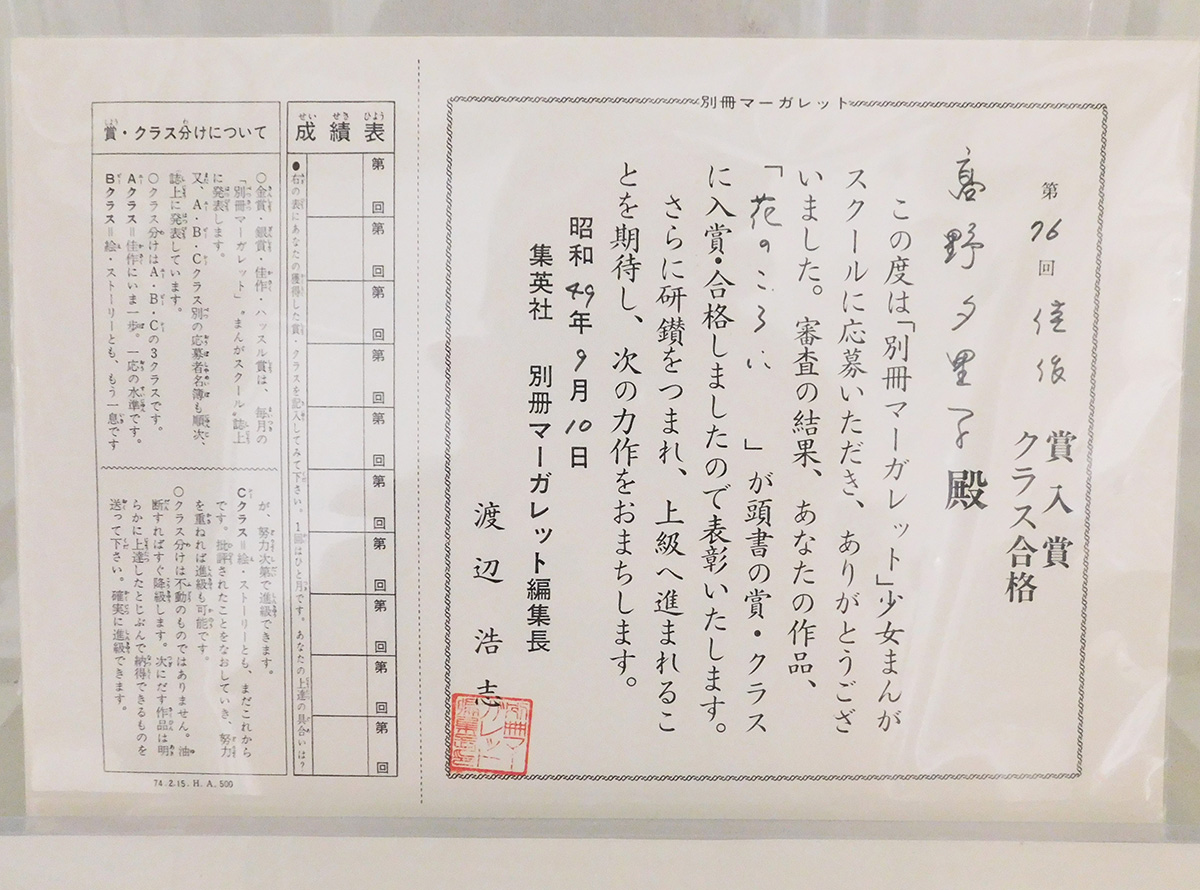 別冊マーガレット
第76回 佳作 賞入賞
クラス合格
高野夕里子殿
この度は「別冊マーガレット」少女まんが
スクールに応募いただき、ありがとうござ
いました。審査の結果、あなたの作品、
「花のころに」が頭書の賞・クラス
に入賞・合格しましたので表彰いたします。
さらに研鑽をつまれ、上級へ進まれるこ
とを期待し、次の力作をおまちします。
昭和49年9月10日
集英社 別冊マーガレット編集長
渡辺浩志
成績表
第 回
第 回
第 回
第 回
第 回
第 回
第 回
第 回
第 回
第 回
●右の表にあなたの獲得した賞・クラスを記入してみて下さい。1回はひと月です。あなたの上達の具合いは?
賞・クラス分けについて
○金賞・銀賞・佳作・ハッスル賞は、毎月の
「別冊マーガレット」〝まんがスクール〟誌上
に発表します。
又、A・B・Cクラス別の応募者名簿も順次、
誌上に発表しています。
○クラス分けはA・B・Cの3クラスです。
Aクラス=佳作にいま一歩。一応の水準です。
Bクラス=絵・ストーリーとも、もう一息です
が、努力次第で進級できます。
Cクラス=絵・ストーリーとも、まだこれから
です。批評されたことをなおしていき、努力
を重ねれば進級も可能です。
○クラス分けは不動のものではありません。油
断すればすぐ降級します。次にだす作品は明
らかに上達したとじぶんで納得できるものを
送って下さい。確実に進級できます。
74.2.15.H.A.500